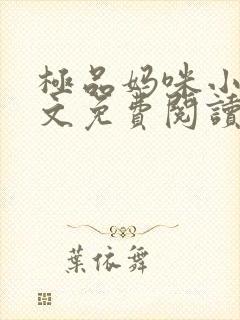 極品妈咪小
文免費閱讀
葉依舞